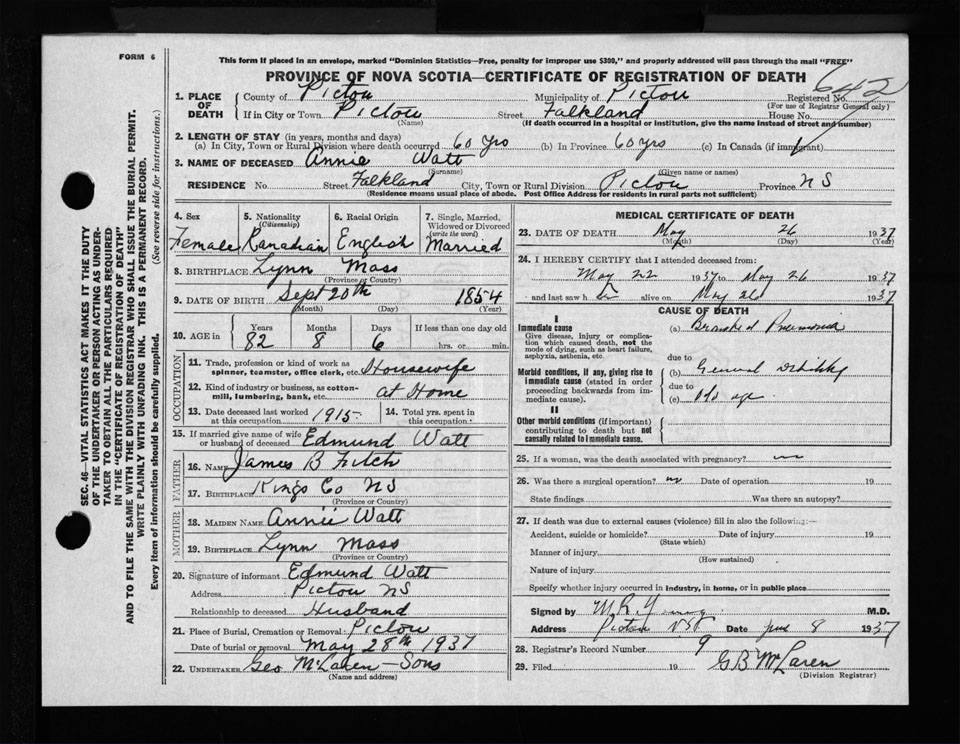 FORM 6
This form if placed in an envelope, marked "Dominion Statistics—Free, penalty for improper use $300," and properly addressed will pass through the mail "FREE"
PROVINCE OF NOVA SCOTIA—CERTIFICATE OF REGISTRATION OF DEATH
1. PLACE OF DEATH County of Pictou Municipality of Pictou Registered No. 642
(For use of Registrar General only)
If in City or Town Pictou Street Falkland House No.
(Name) (If death occurred in a hospital or institution, give the name instead of street and number)
2. LENGTH OF STAY (in years, months and days)
(a) In City, Town or Rural Division where death occurred 60 yrs (b) In Province 60 yrs (c) In Canada (if immigrant)
3. NAME OF DECEASED Annie Watt
(Surname) (Given name or names)
RESIDENCE No. Street Falkland City, Town or Rural Division Pictou Province NS
(Residence means usual place of abode. Post Office Address for residents in rural parts not sufficient)
SEC. 46—VITAL STATISTICS ACT MAKES IT THE DUTY
OF THE UNDERTAKER OR PERSON ACTING AS UNDER-
TAKER TO OBTAIN ALL THE PARTICULARS REQUIRED
IN THE "CERTIFICATE OF REGISTRATION OF DEATH"
AND TO FILE THE SAME WITH THE DIVISION REGISTRAR WHO SHALL ISSUE THE BURIAL PERMIT.
WRITE PLAINLY WITH UNFADING INK. THIS IS A PERMANENT RECORD.
Every item of information should be carefully supplied. (See reverse side for instructions.)
4. Sex 5. Nationality (Citizenship) 6. Racial Origin 7. Single, Married, Widowed or Divorced (write the word)
Female Canadian English Married
8. BIRTHPLACE Lynn Mass
(Province or Country)
9. DATE OF BIRTH Sept 20th 1854
(Month) (Day) (Year)
10. AGE in Years Months Days If less than one day old
82 8 6 hrs. or min.
OCCUPATION
11. Trade, profession or kind of work as spinner, teamster, office clerk, etc. Housewife
12. Kind of industry or business, as cotton-mill, lumbering, bank, etc. at Home
13. Date deceased last worked at this occupation 1915 14. Total yrs. spent in this occupation
15. If married give name of wife or husband of deceased Edmund Watt
FATHER
16. NAME James B Fitch
17. BIRTHPLACE Kings Co NS
(Province or Country)
MOTHER
18. MAIDEN NAME Annie Watt
19. BIRTHPLACE Lynn Mass
(Province or Country)
20. Signature of informant Edmund Watt
Address Pictou NS
Relationship to deceased Husband
21. Place of Burial, Cremation or Removal Pictou
Date of burial or removal May 28th 1937
22. UNDERTAKER Geo McLaren—Sons
(Name and address)
MEDICAL CERTIFICATE OF DEATH
23. DATE OF DEATH May 26 1937
(Month) (Day) (Year)
24. I HEREBY CERTIFY that I attended deceased from:
May 22 1937 to May 26 1937
and last saw h er alive on May 26 1937
CAUSE OF DEATH
I
Immediate cause
Give disease, injury or complication which caused death, not the mode of dying, such as heart failure, asphyxia, asthenia, etc.
(a) Bronchial Pneumonia
due to
Morbid conditions, if any, giving rise to immediate cause (stated in order proceeding backwards from immediate cause).
(b) General Debility
due to
(c) Old age
II
Other morbid conditions (if important) contributing to death but not causally related to immediate cause.
25. If a woman, was the death associated with pregnancy? no
26. Was there a surgical operation? no Date of operation 19
State findings Was there an autopsy?
27. If death was due to external causes (violence) fill in also the following:—
Accident, suicide or homicide? Date of injury 19
(State which)
Manner of injury
(How sustained)
Nature of injury
Specify whether injury occurred in industry, in home, or in public place
Signed by M.R. Young M.D.
Address Pictou Date June 8 1937
28. Registrar's Record Number 9
29. Filed 19 GB McLaren
(Division Registrar)